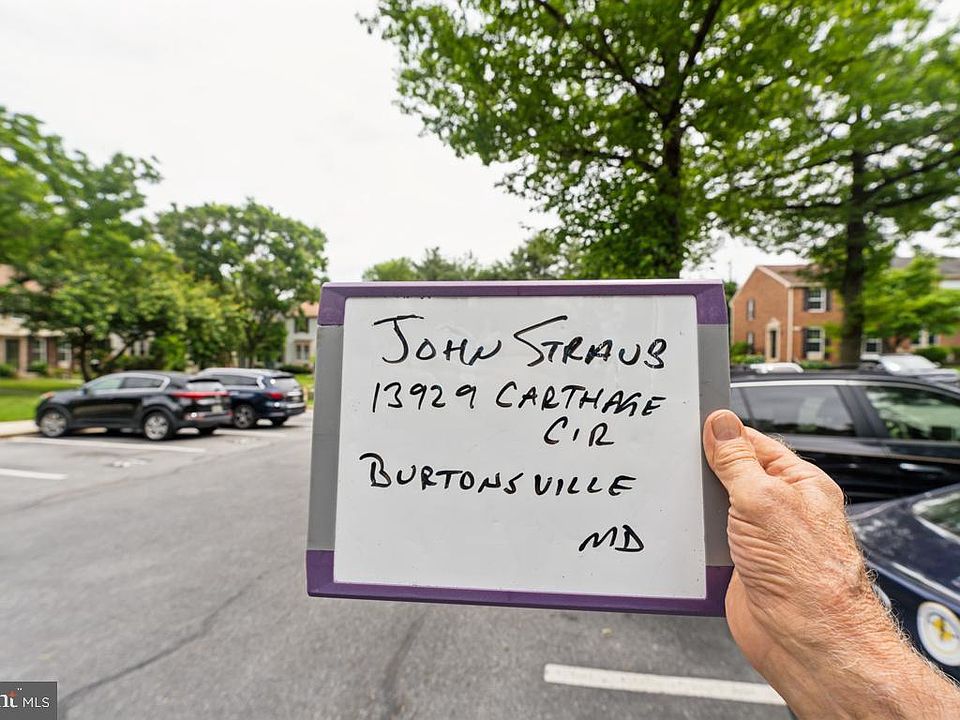 JOHN STRAUB
13929 CARTHAGE
CIR
BURTONSVILLE
MD
MLS